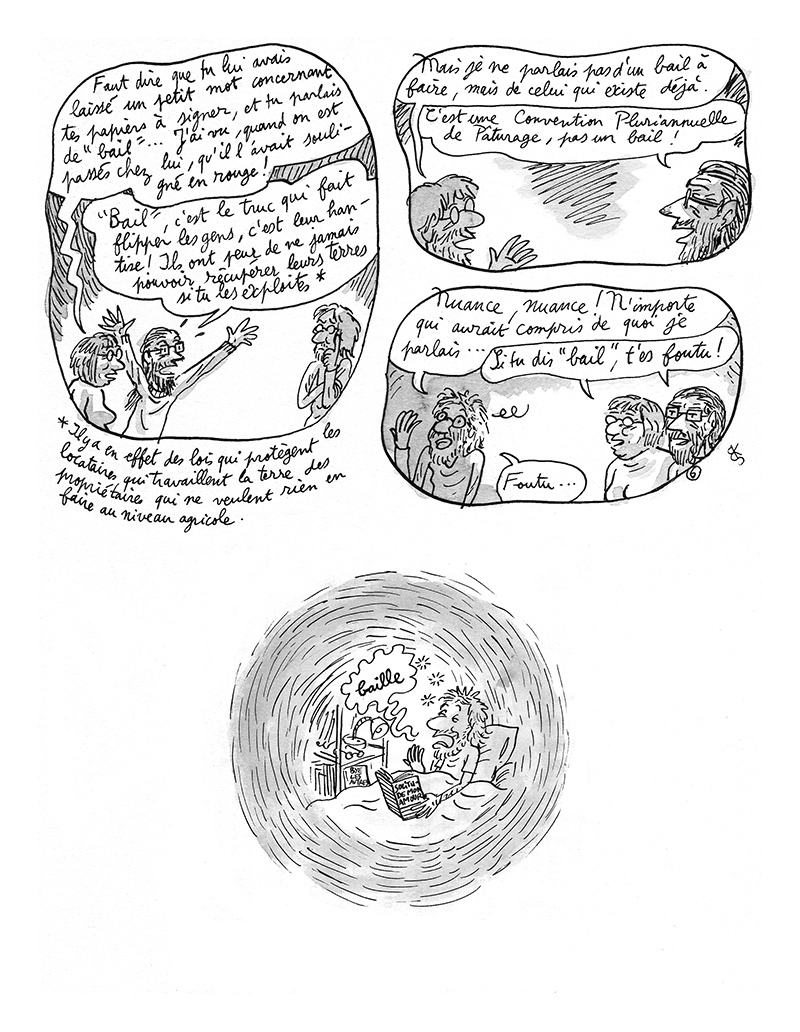 Faut dire que tu lui avais
laissé un petit mot concernant
tes papiers à signer, et tu parlais
de "bail"... J'ai vu, quand on est
passés chez lui, qu'il l'avait souli-
gné en rouge!
"Bail", c'est le truc qui fait
flipper les gens, c'est leur han-
tise! Ils ont peur de ne jamais
pouvoir récupérer leurs terres
si tu les exploites *
* Il y a en effet des lois qui protègent les
locataires qui travaillent la terre des
propriétaires qui ne veulent rien en
faire au niveau agricole.
Mais je ne parlais pas d'un bail à
faire, mais de celui qui existe déjà.
C'est une Convention Pluriannuelle
de Pâturage, pas un bail!
Nuance, nuance! N'importe
qui aurait compris de quoi je
parlais...
Si tu dis "bail", t'es foutu!
Foutu...
6
baille
BYE
LES
SOLITU-
DE MON
AMOUR